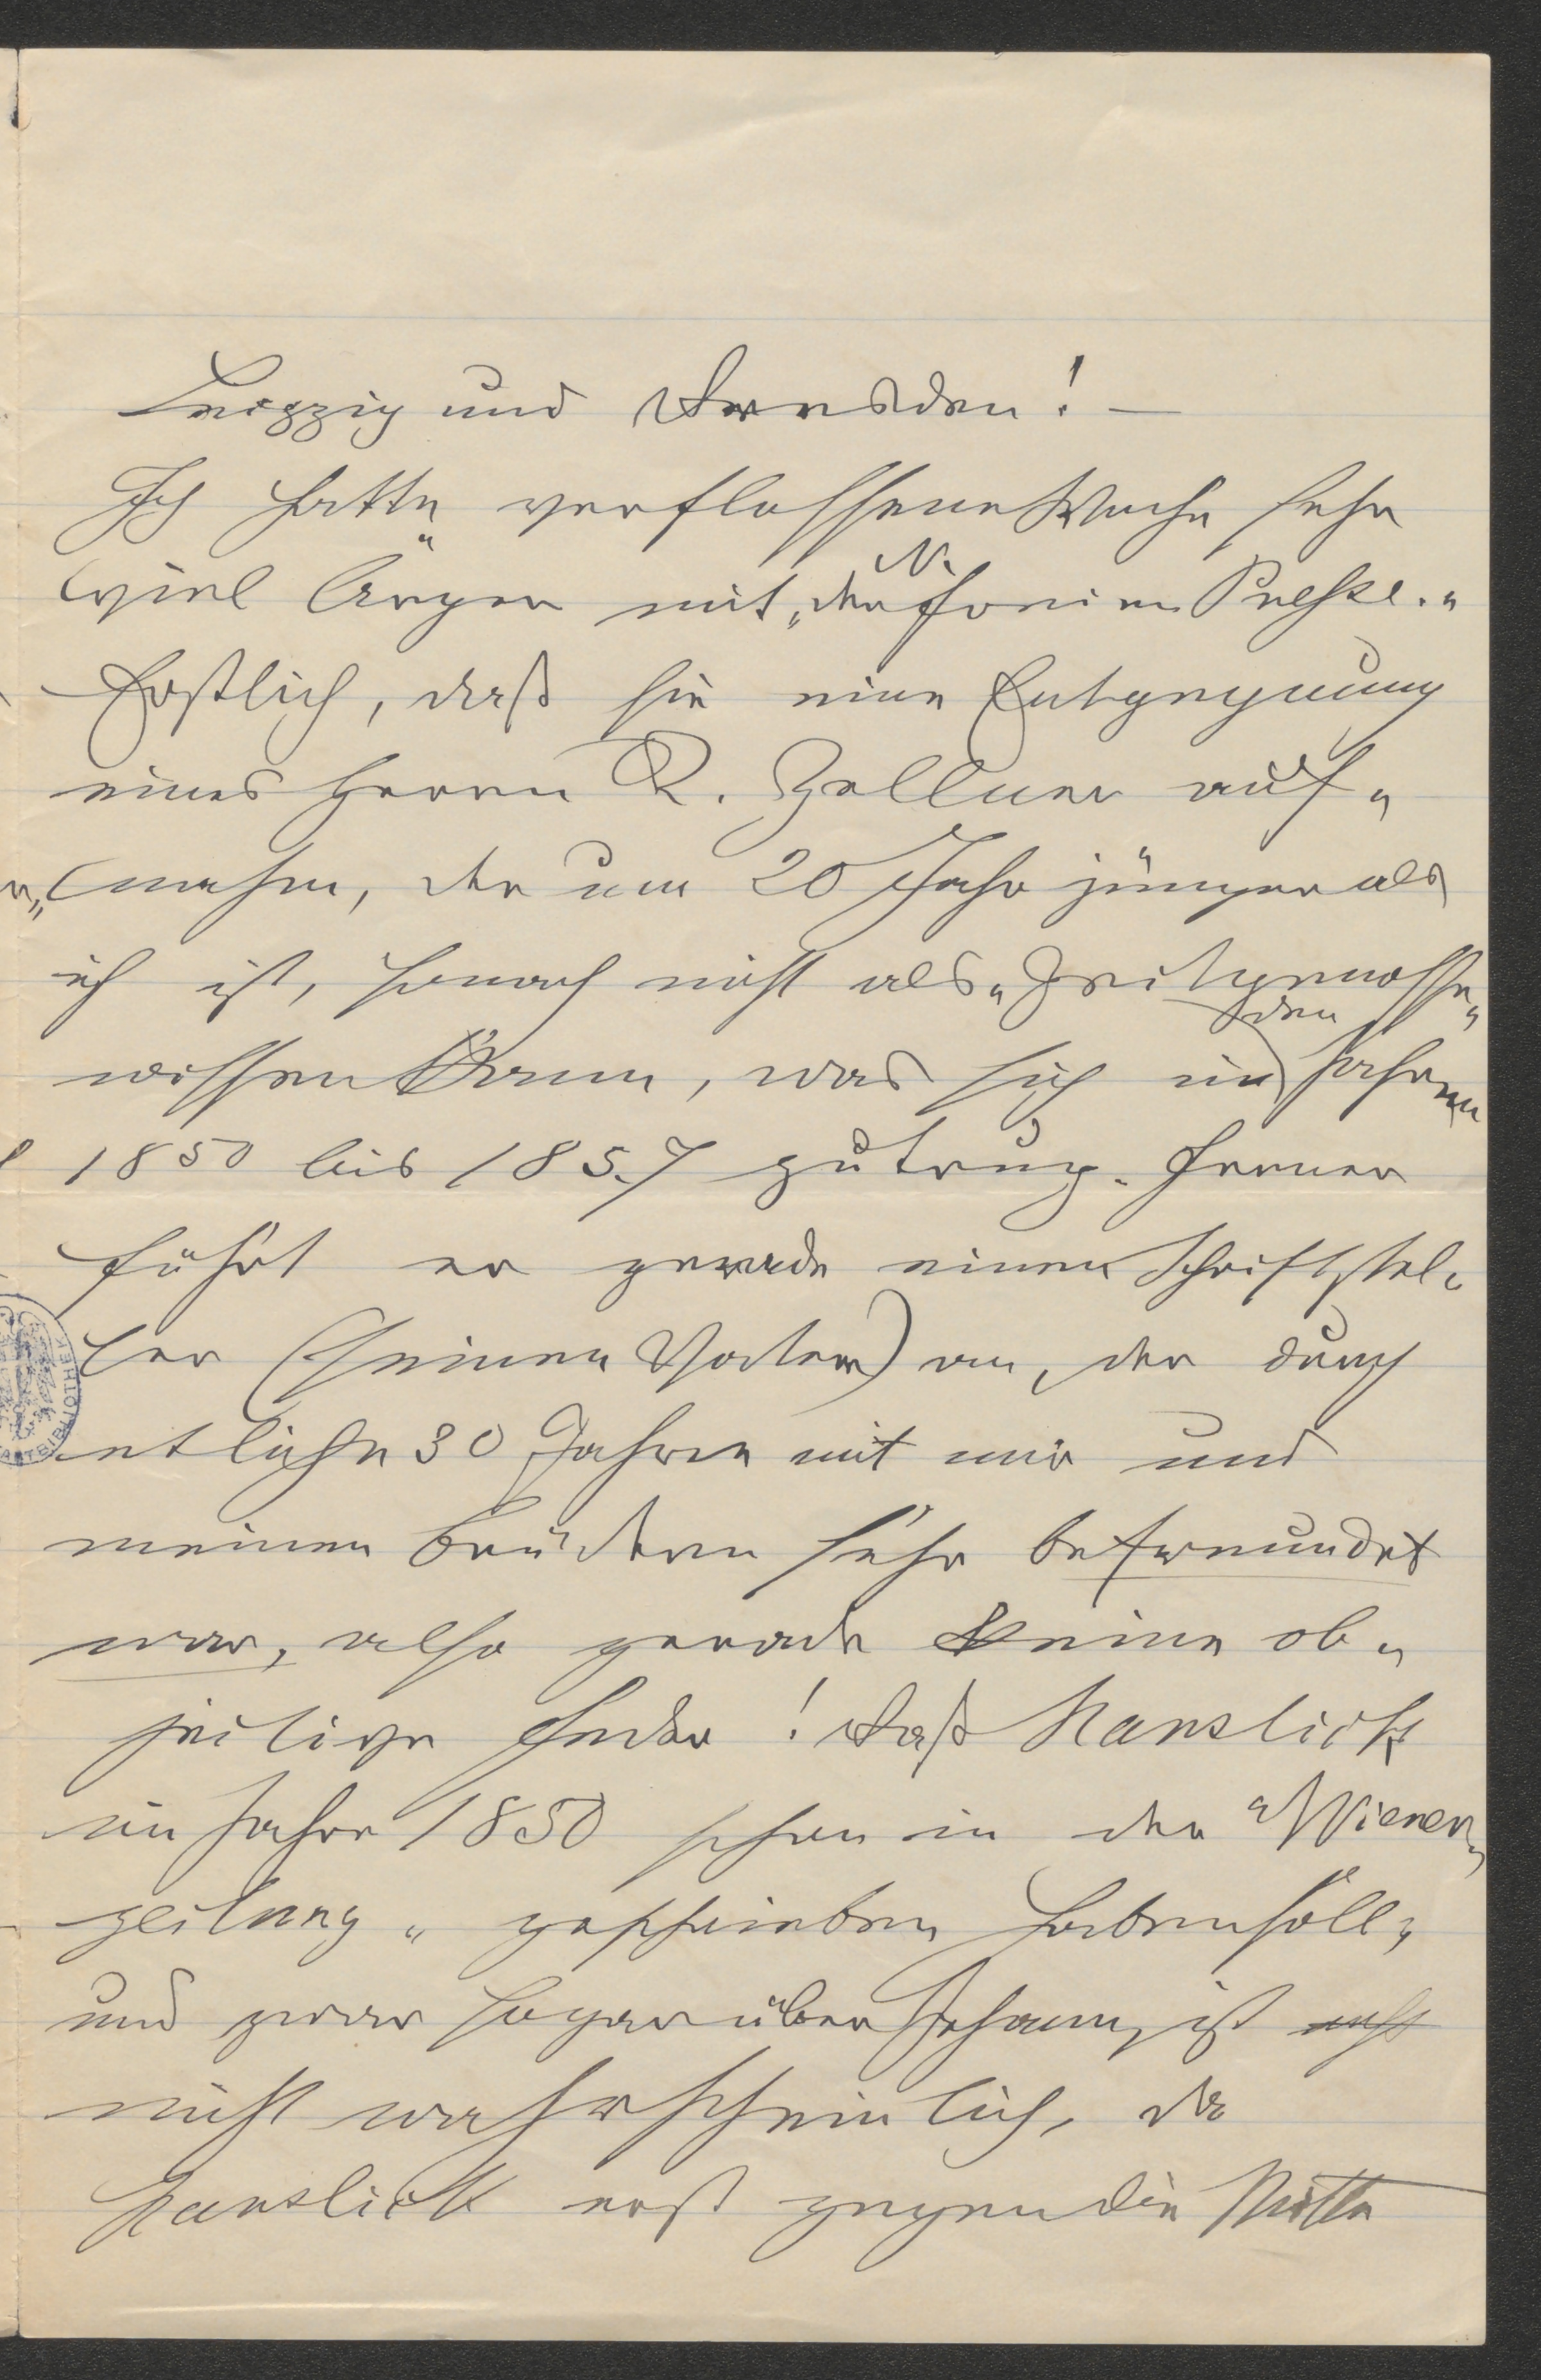 Leipzig und Dresden! —
Ich hatte verflossene Woche sehr
viel Ärger mit „der N. Freien Presse."
Erstlich, daß sie eine Entgegnung
eines Herrn R. Zellner auf„
nahm, der um 20 Jahr jünger als
ich ist, sonach nicht als „Zeitgenosse"
wissen kann, was sich in den Jahren
1850 bis 1857 zutrug. Ferner
führt er gerade einen Schriftstel„
ler (seinen Vater) an, der durch
etliche 30 Jahre mit mir und
meinen Brüdern sehr befreundet
war, also gerade keine ob„
jective Feder! Daß Hanslick
im Jahre 1850 schon in der „Wiener„
zeitung" geschrieben haben soll,
und zwar sogar über Johann, ist
nicht wahrscheinlich, da
Hanslick erst gegen die Mitte